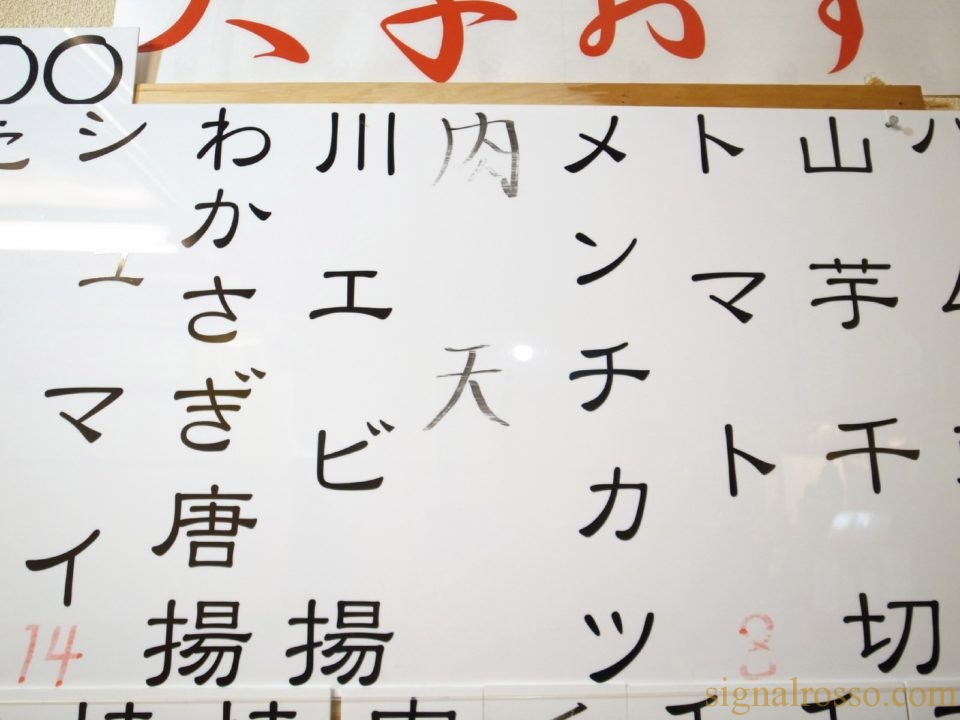 山芋千切
トマト
メンチカツ
肉天
川エビ揚
わかさぎ唐揚
シュマイ
14
signalrosso.com